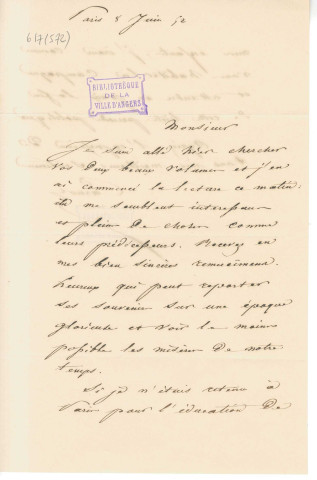 Paris 8 Juin 52
617 (572)
BIBLIOTHÈQUE
DE LA
VILLE D'ANGERS
Monsieur
Je suis allé hier chercher
vos deux beaux volumes et j'en
ai commencé la lecture ce matin.
ils me semblent interessans
et plein de choses comme
leurs prédécesseurs. Recevez en
mes bien sincères remerciemens.
heureux qui peut reporter
ses souvenirs sur une époque
glorieuse et voir le moins
possible les misères de notre
temps.
Si je n'étais retenu à
Paris pour l'éducation de